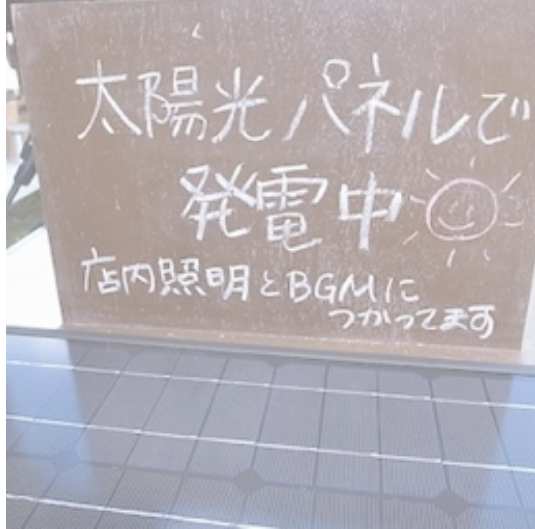 太陽光パネルで
発電中
店内照明とBGMに
つかってます